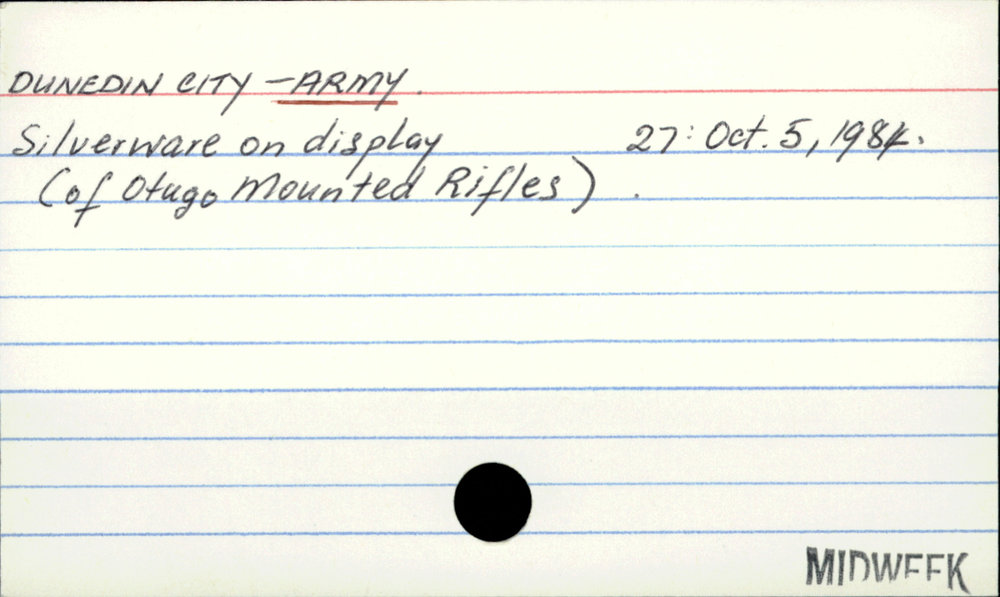 DUNEDIN CITY - ARMY.
Silverware on display 27: Oct. 5, 1984.
(of Otago Mounted Rifles).
MIDWEEK